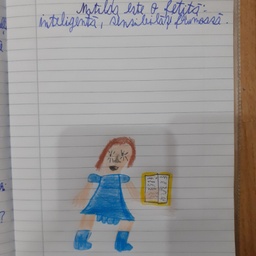 Matilda este o fetiță:
inteligentă, sensibilă, frumoasă.